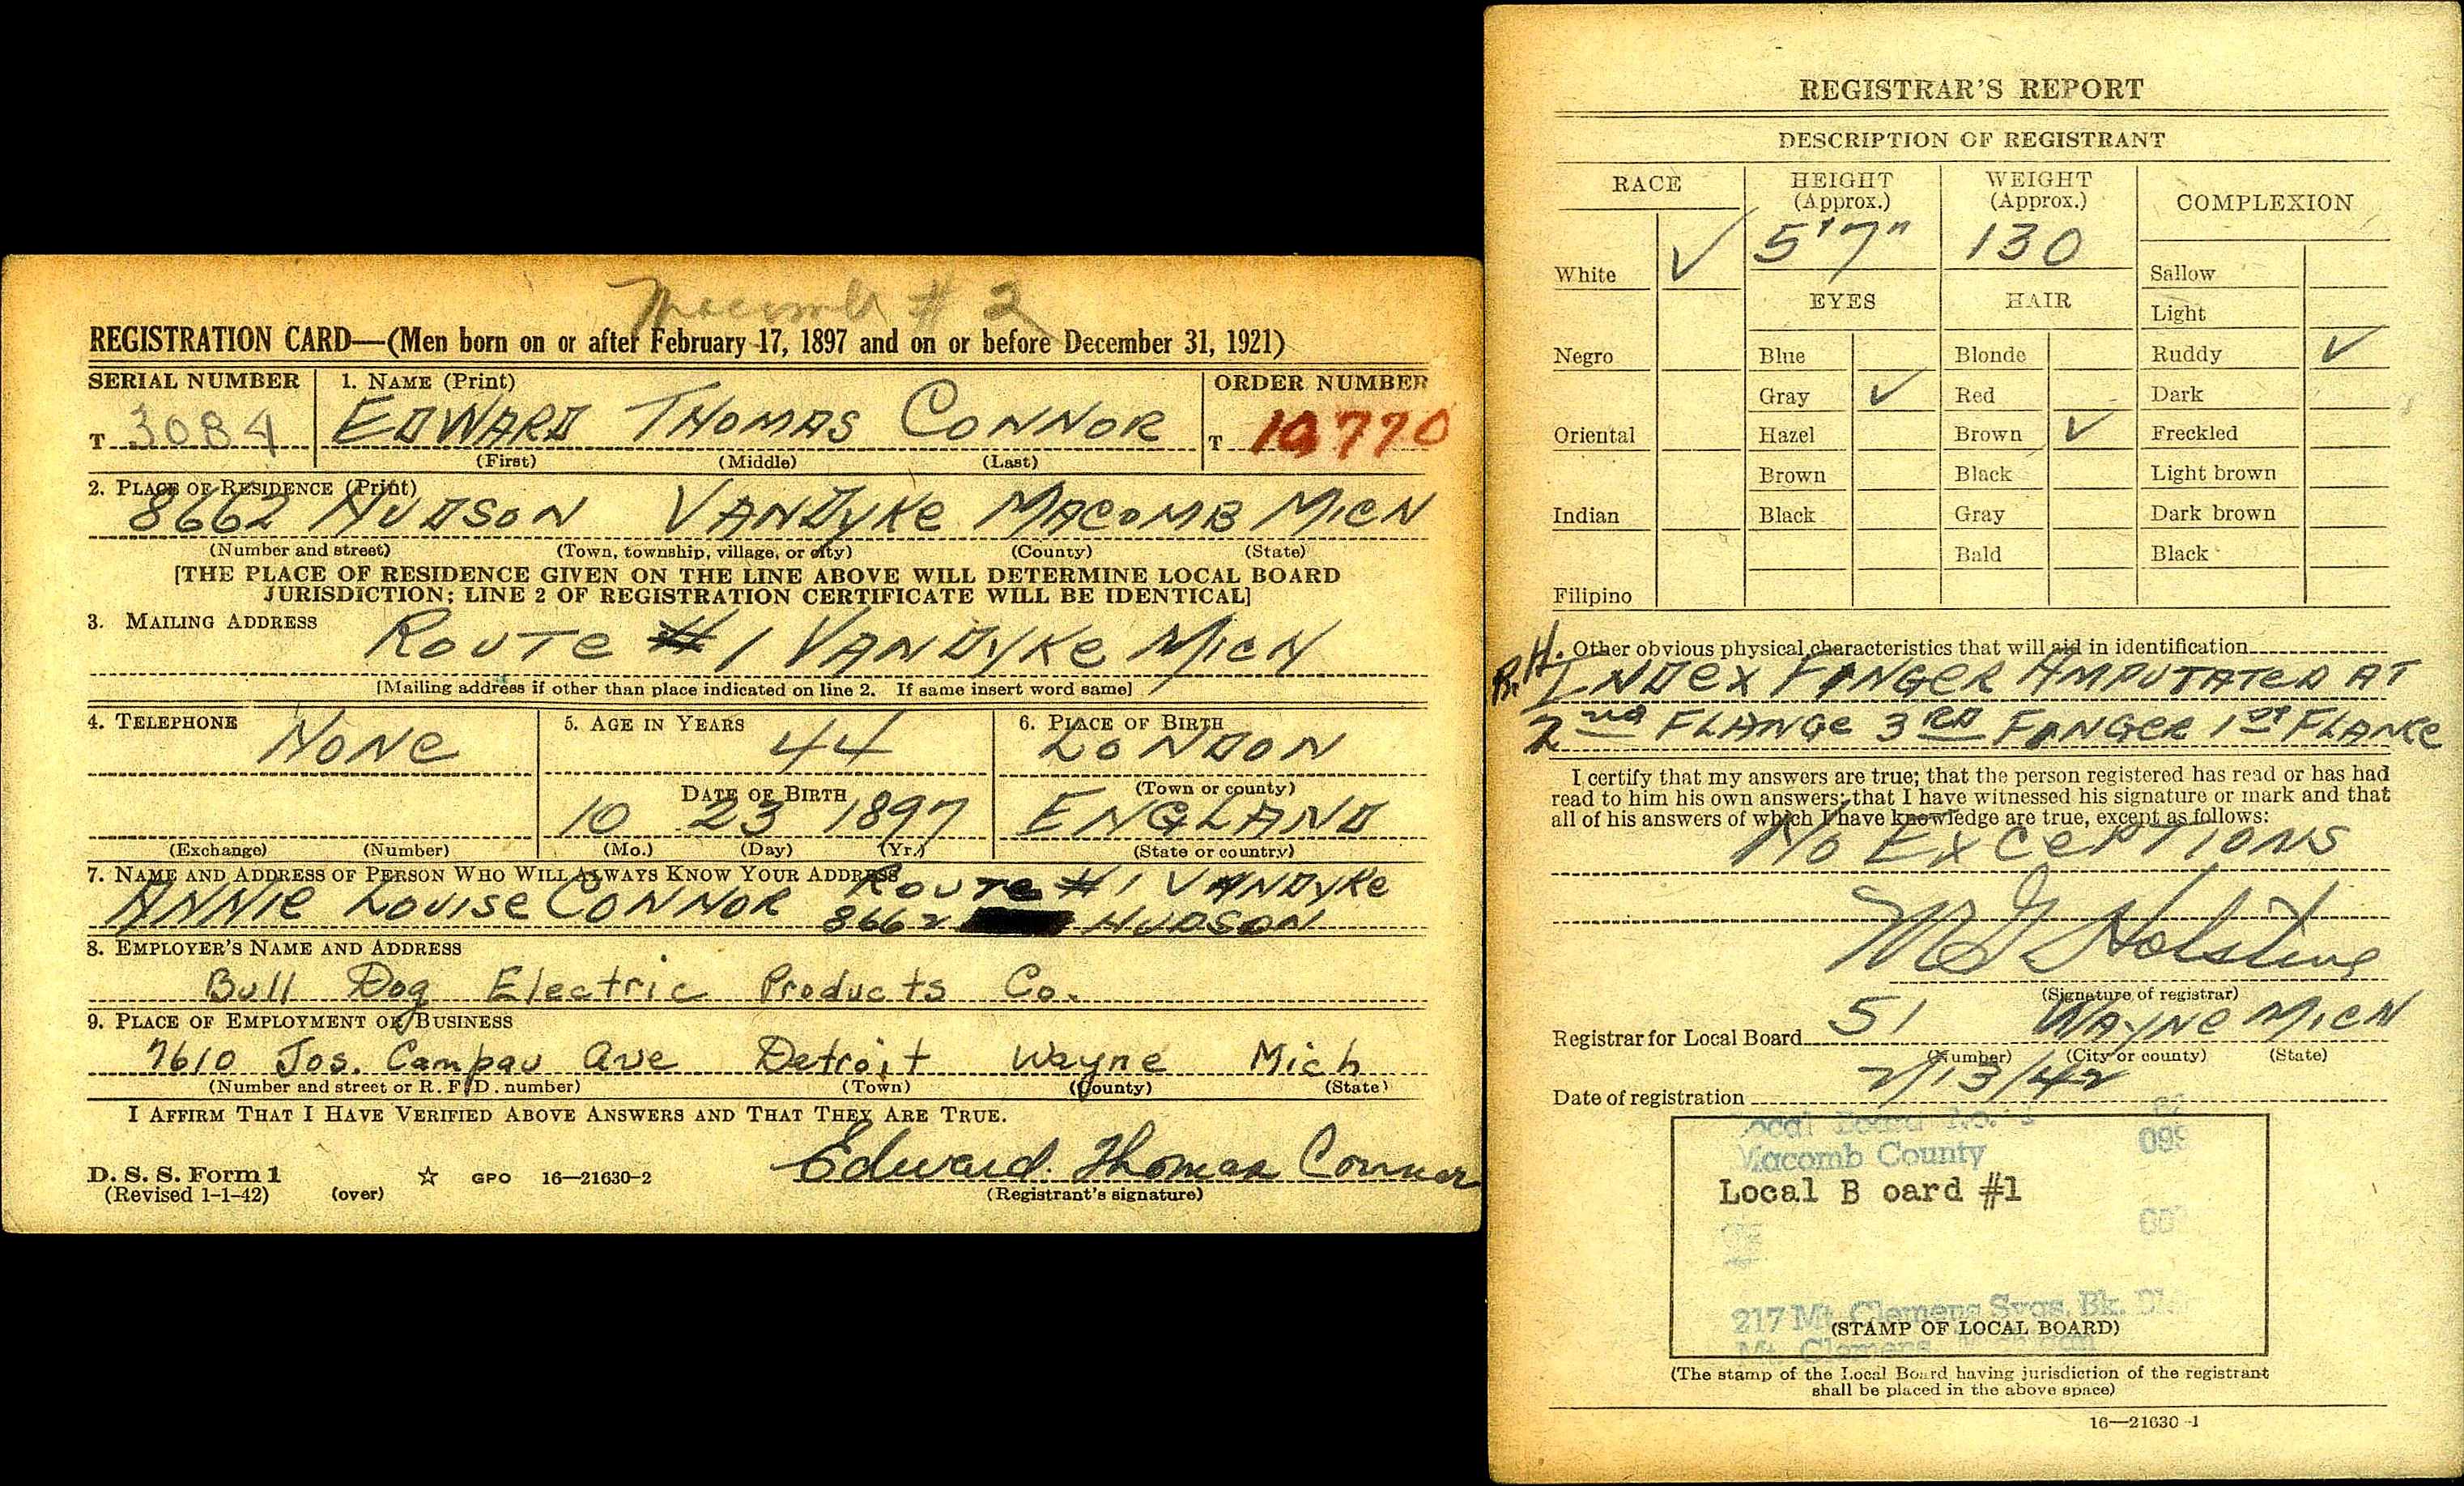 Macomb # 2
REGISTRATION CARD—(Men born on or after February 17, 1897 and on or before December 31, 1921)
SERIAL NUMBER 1. NAME (Print) ORDER NUMBER
T 3084 EDWARD THOMAS CONNOR T 10770
(First) (Middle) (Last)
2. PLACE OF RESIDENCE (Print)
8662 HUDSON VANDYKE MACOMB MICH
(Number and street) (Town, township, village, or city) (County) (State)
[THE PLACE OF RESIDENCE GIVEN ON THE LINE ABOVE WILL DETERMINE LOCAL BOARD
JURISDICTION; LINE 2 OF REGISTRATION CERTIFICATE WILL BE IDENTICAL]
3. MAILING ADDRESS
ROUTE #1 VANDYKE MICH
[Mailing address if other than place indicated on line 2. If same insert word same]
4. TELEPHONE 5. AGE IN YEARS 6. PLACE OF BIRTH
NONE 44 LONDON
DATE OF BIRTH (Town or county)
10 23 1897 ENGLAND
(Exchange) (Number) (Mo.) (Day) (Yr.) (State or country)
7. NAME AND ADDRESS OF PERSON WHO WILL ALWAYS KNOW YOUR ADDRESS
ANNIE LOUISE CONNOR ROUTE #1 VANDYKE
8662 HUDSON
8. EMPLOYER'S NAME AND ADDRESS
Bull Dog Electric Products Co.
9. PLACE OF EMPLOYMENT OR BUSINESS
7610 Jos. Campau Ave Detroit Wayne Mich
(Number and street or R. F. D. number) (Town) (County) (State)
I AFFIRM THAT I HAVE VERIFIED ABOVE ANSWERS AND THAT THEY ARE TRUE.
Edward Thomas Connor
D. S. S. Form 1
(Revised 1-1-42) (over) ☆ GPO 16—21630-2 (Registrant's signature)
REGISTRAR'S REPORT
DESCRIPTION OF REGISTRANT
RACE HEIGHT (Approx.) WEIGHT (Approx.) COMPLEXION
White ✓ 5'7" 130 Sallow
EYES HAIR Light
Negro Blue Blonde Ruddy ✓
Gray ✓ Red Dark
Oriental Hazel Brown ✓ Freckled
Brown Black Light brown
Indian Black Gray Dark brown
Bald Black
Filipino
Other obvious physical characteristics that will aid in identification
R.H. INDEX FINGER AMPUTATED AT
2nd FLANGE 3RD FINGER 1ST FLANGE
I certify that my answers are true; that the person registered has read or has had
read to him his own answers; that I have witnessed his signature or mark and that
all of his answers of which I have knowledge are true, except as follows:
NO EXCEPTIONS
(Signature of registrar)
Registrar for Local Board 51 WAYNE MICH
(Number) (City or county) (State)
Date of registration 2/13/42
Local Board
Macomb County
Local B oard #1
217 Mt. Clemens Svgs. Bk.
(STAMP OF LOCAL BOARD)
Mt. Clemens, Michigan
(The stamp of the Local Board having jurisdiction of the registrant
shall be placed in the above space)
16—21630-1